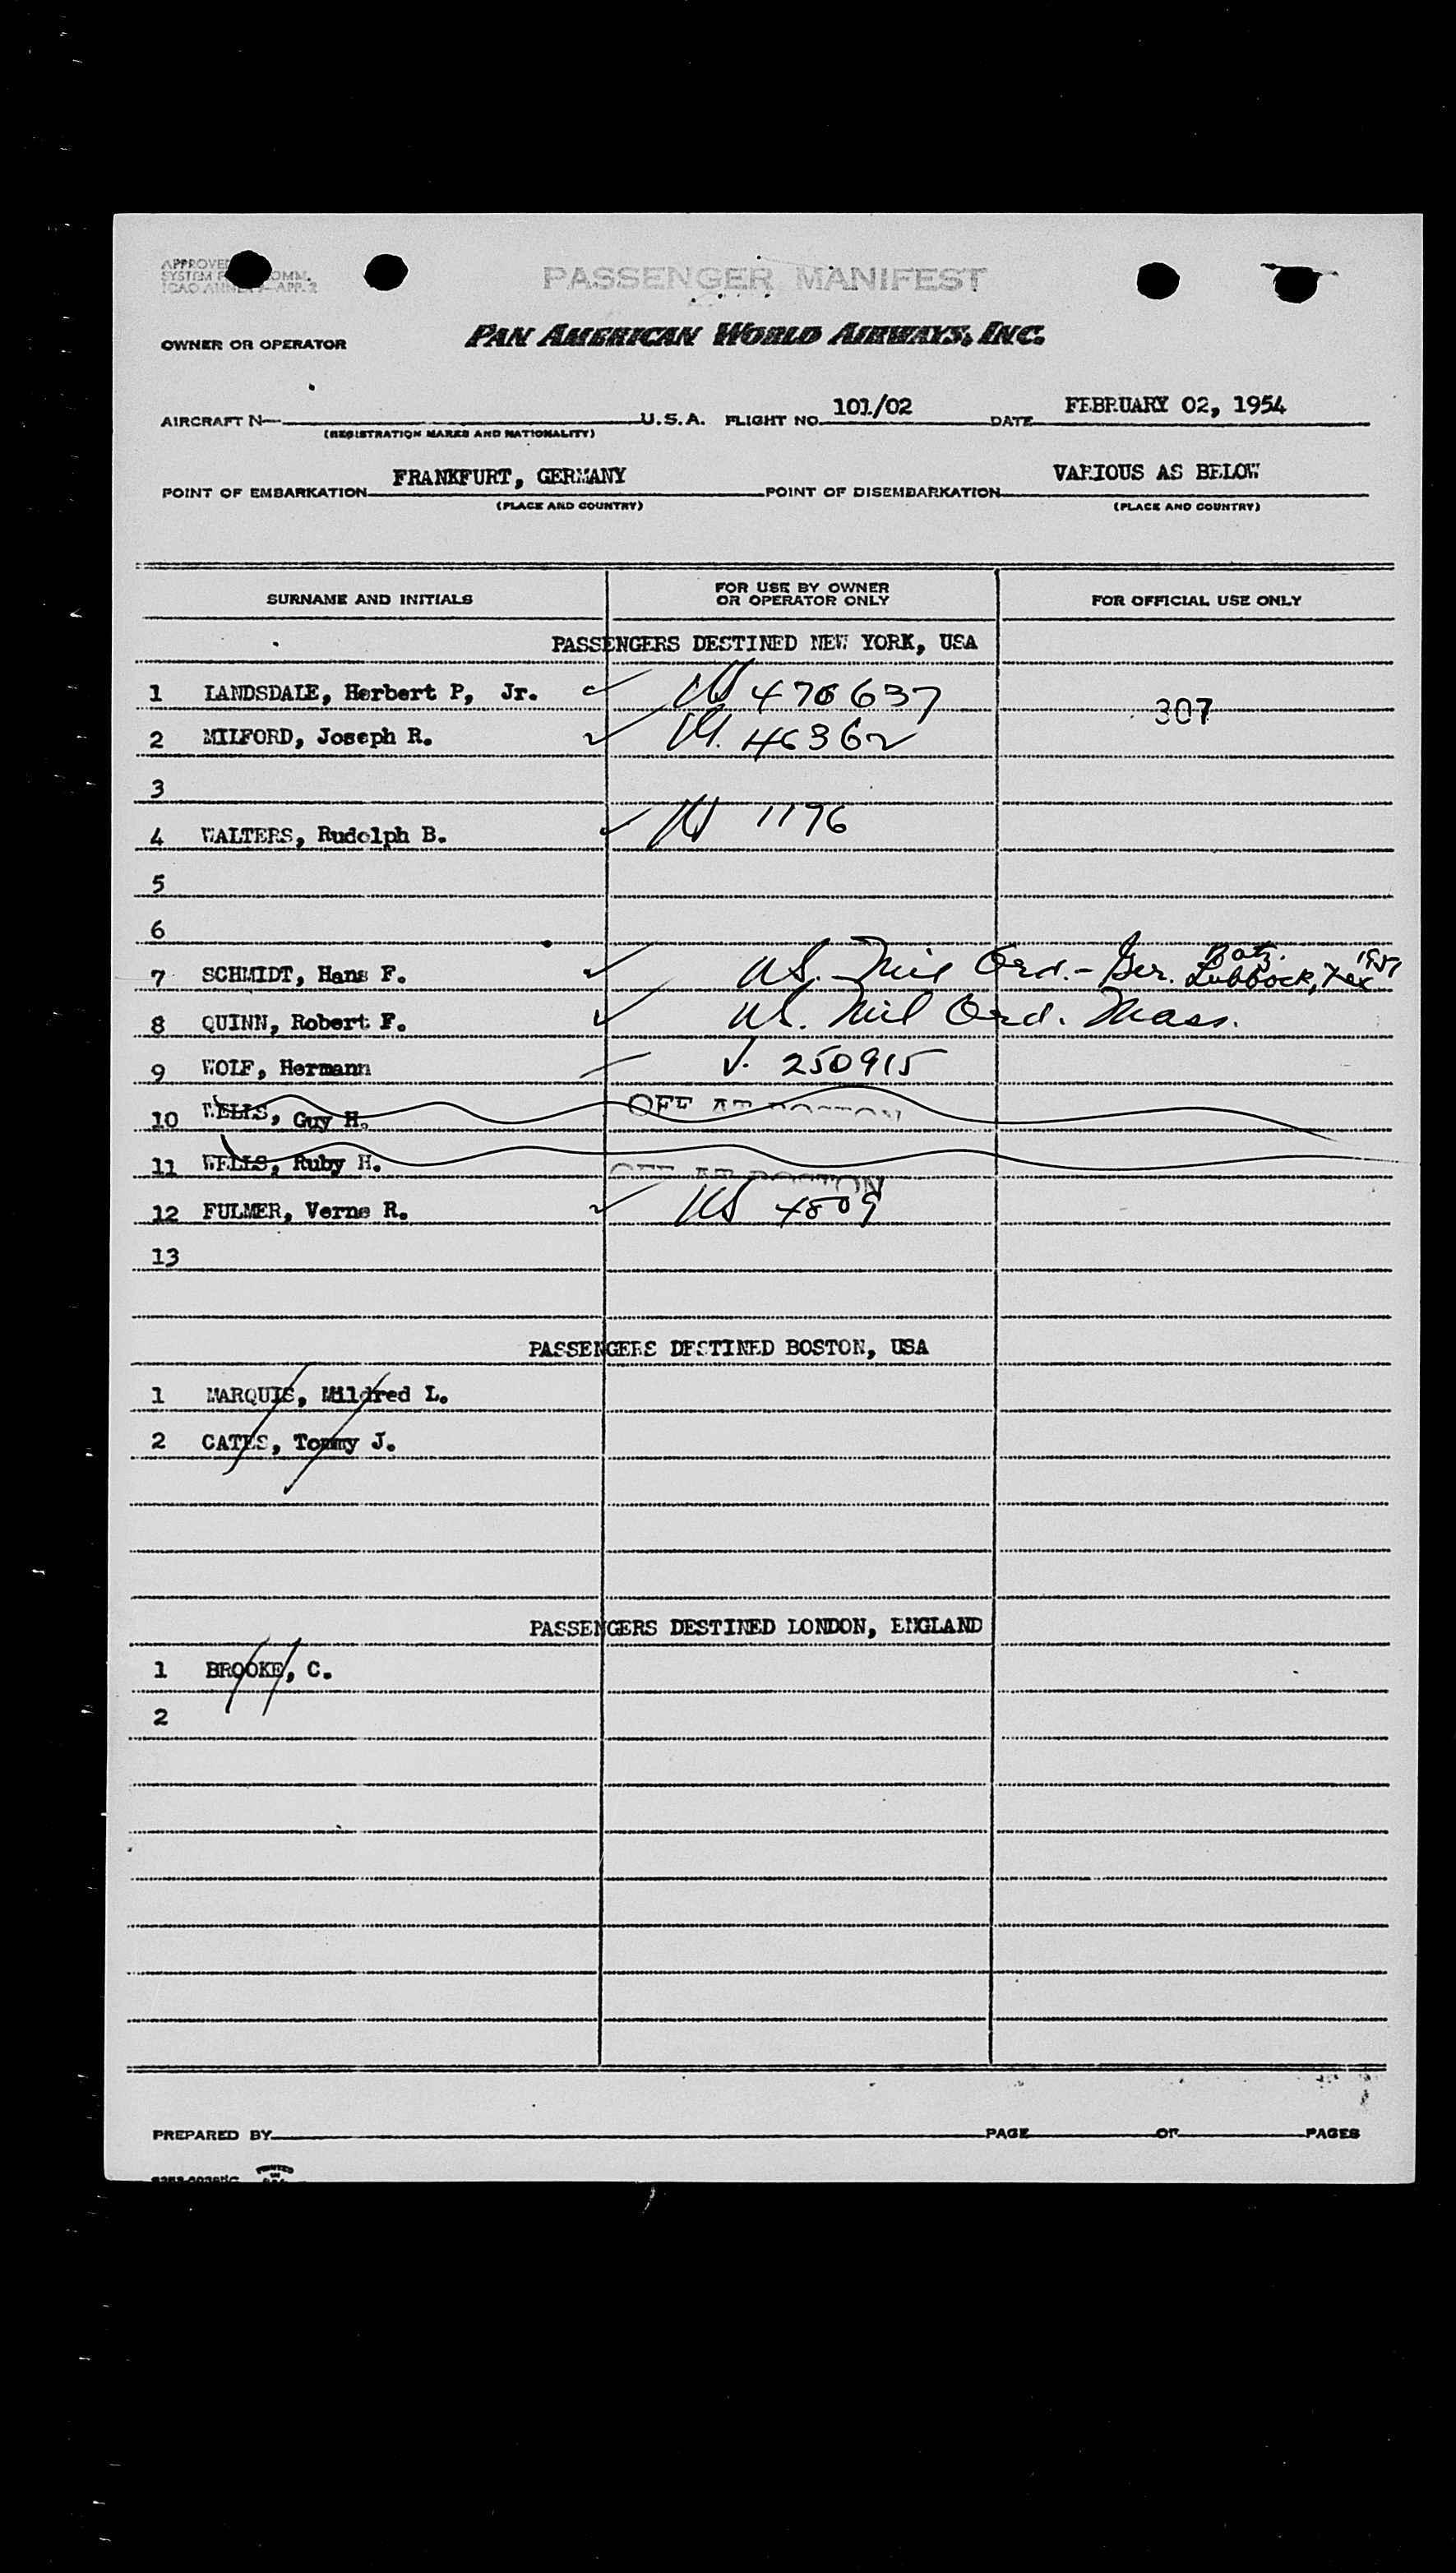 APPROVED
SYSTEM COMM.
ICAO ANNEX APP. 2
PASSENGER MANIFEST
OWNER OR OPERATOR PAN AMERICAN WORLD AIRWAYS, INC.
AIRCRAFT N— U.S.A. FLIGHT NO. 101/02 DATE FEBRUARY 02, 1954
(REGISTRATION MARKS AND NATIONALITY)
POINT OF EMBARKATION FRANKFURT, GERMANY POINT OF DISEMBARKATION VARIOUS AS BELOW
(PLACE AND COUNTRY) (PLACE AND COUNTRY)
SURNAME AND INITIALS FOR USE BY OWNER OR OPERATOR ONLY FOR OFFICIAL USE ONLY
PASSENGERS DESTINED NEW YORK, USA
1 LANDSDALE, Herbert P, Jr. US 476637 307
2 MILFORD, Joseph R. 46362
3
4 WALTERS, Rudolph B. US 1196
5
6
7 SCHMIDT, Hans F. US. Mil Ord. - Ger. Lubbock, Tex
8 QUINN, Robert F. US. Mil Ord. Mass.
9 WOLF, Hermann V. 250915
10 WELLS, Guy H. OFF AT BOSTON
11 WELLS, Ruby H. OFF AT BOSTON
12 FULMER, Verne R. US 4809
13
PASSENGERS DESTINED BOSTON, USA
1 MARQUIS, Mildred L.
2 CATES, Tommy J.
PASSENGERS DESTINED LONDON, ENGLAND
1 BROOKE, C.
2
PREPARED BY PAGE OF PAGES
PRINTED IN